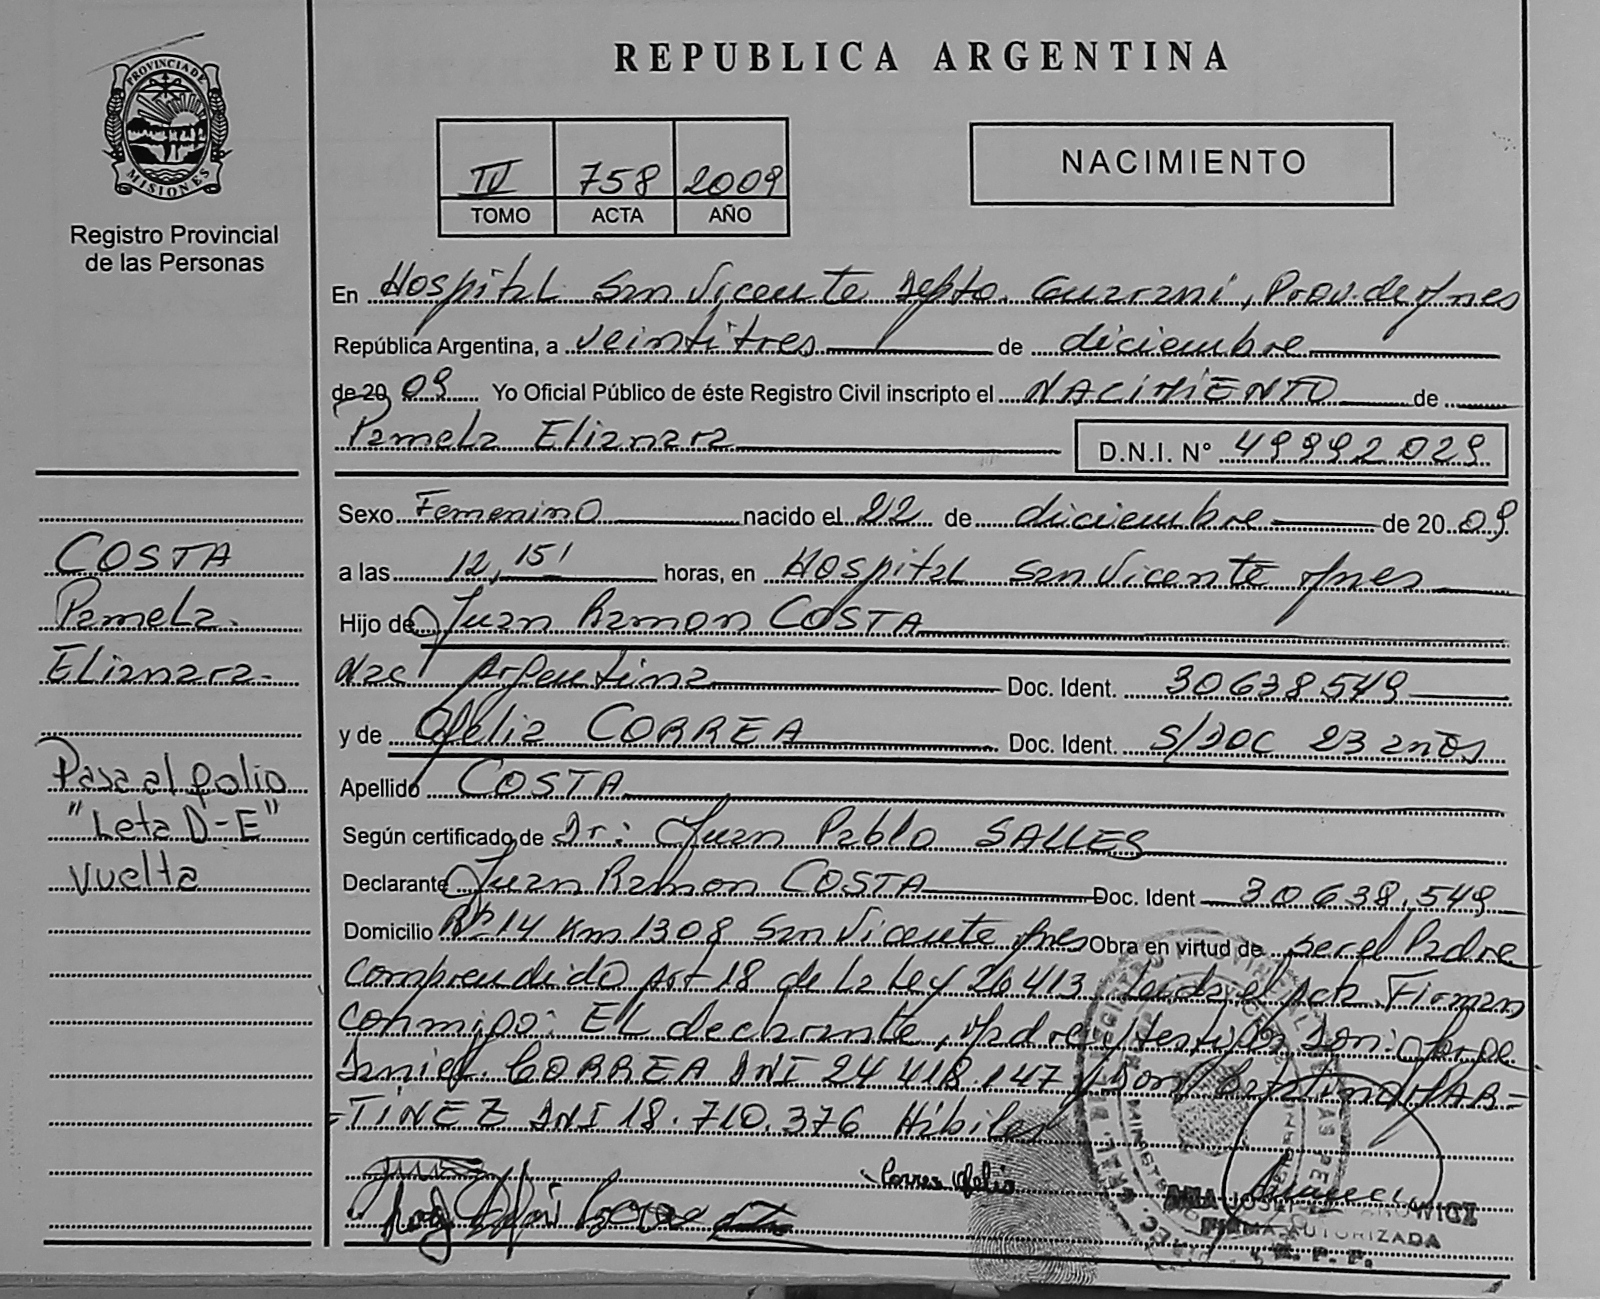 REPUBLICA ARGENTINA
PROVINCIA DE
MISIONES
Registro Provincial
de las Personas
IV 758 2009
TOMO ACTA AÑO
NACIMIENTO
En Hospital San Vicente Depto. Guarani, Prov. de Mnes
República Argentina, a veintitres de diciembre
de 20 09 Yo Oficial Público de éste Registro Civil inscripto el NACIMIENTO de
Pamela Elianara D.N.I. Nº 49992029
COSTA
Pamela.
Elianara-
Pasa al folio
"Leta D-E"
vuelta
Sexo Femenino nacido el 22 de diciembre de 20 09
a las 12,15' horas, en Hospital San Vicente Mnes
Hijo de Juan Ramon COSTA
Nac Argentina Doc. Ident. 30638549
y de Ofelia CORREA Doc. Ident. S/DOC 23 años
Apellido COSTA
Según certificado de Dr: Juan Pablo SALLES
Declarante Juan Ramon COSTA Doc. Ident 30.638.549
Domicilio 14 Km 1308 San Vicente Mnes Obra en virtud de ser el Padre
Comprendido Art 18 de La Ley 26413 Leida el acta Firman
Conmigo: EL declarante, Madre y testigos Don: Jorge
Daniel CORREA DNI 24 418.147 y Don MAR=
=TINEZ DNI 18.710.376 Hábiles
Correa Ofelia
FIRMA AUTORIZADA
R. P. P.